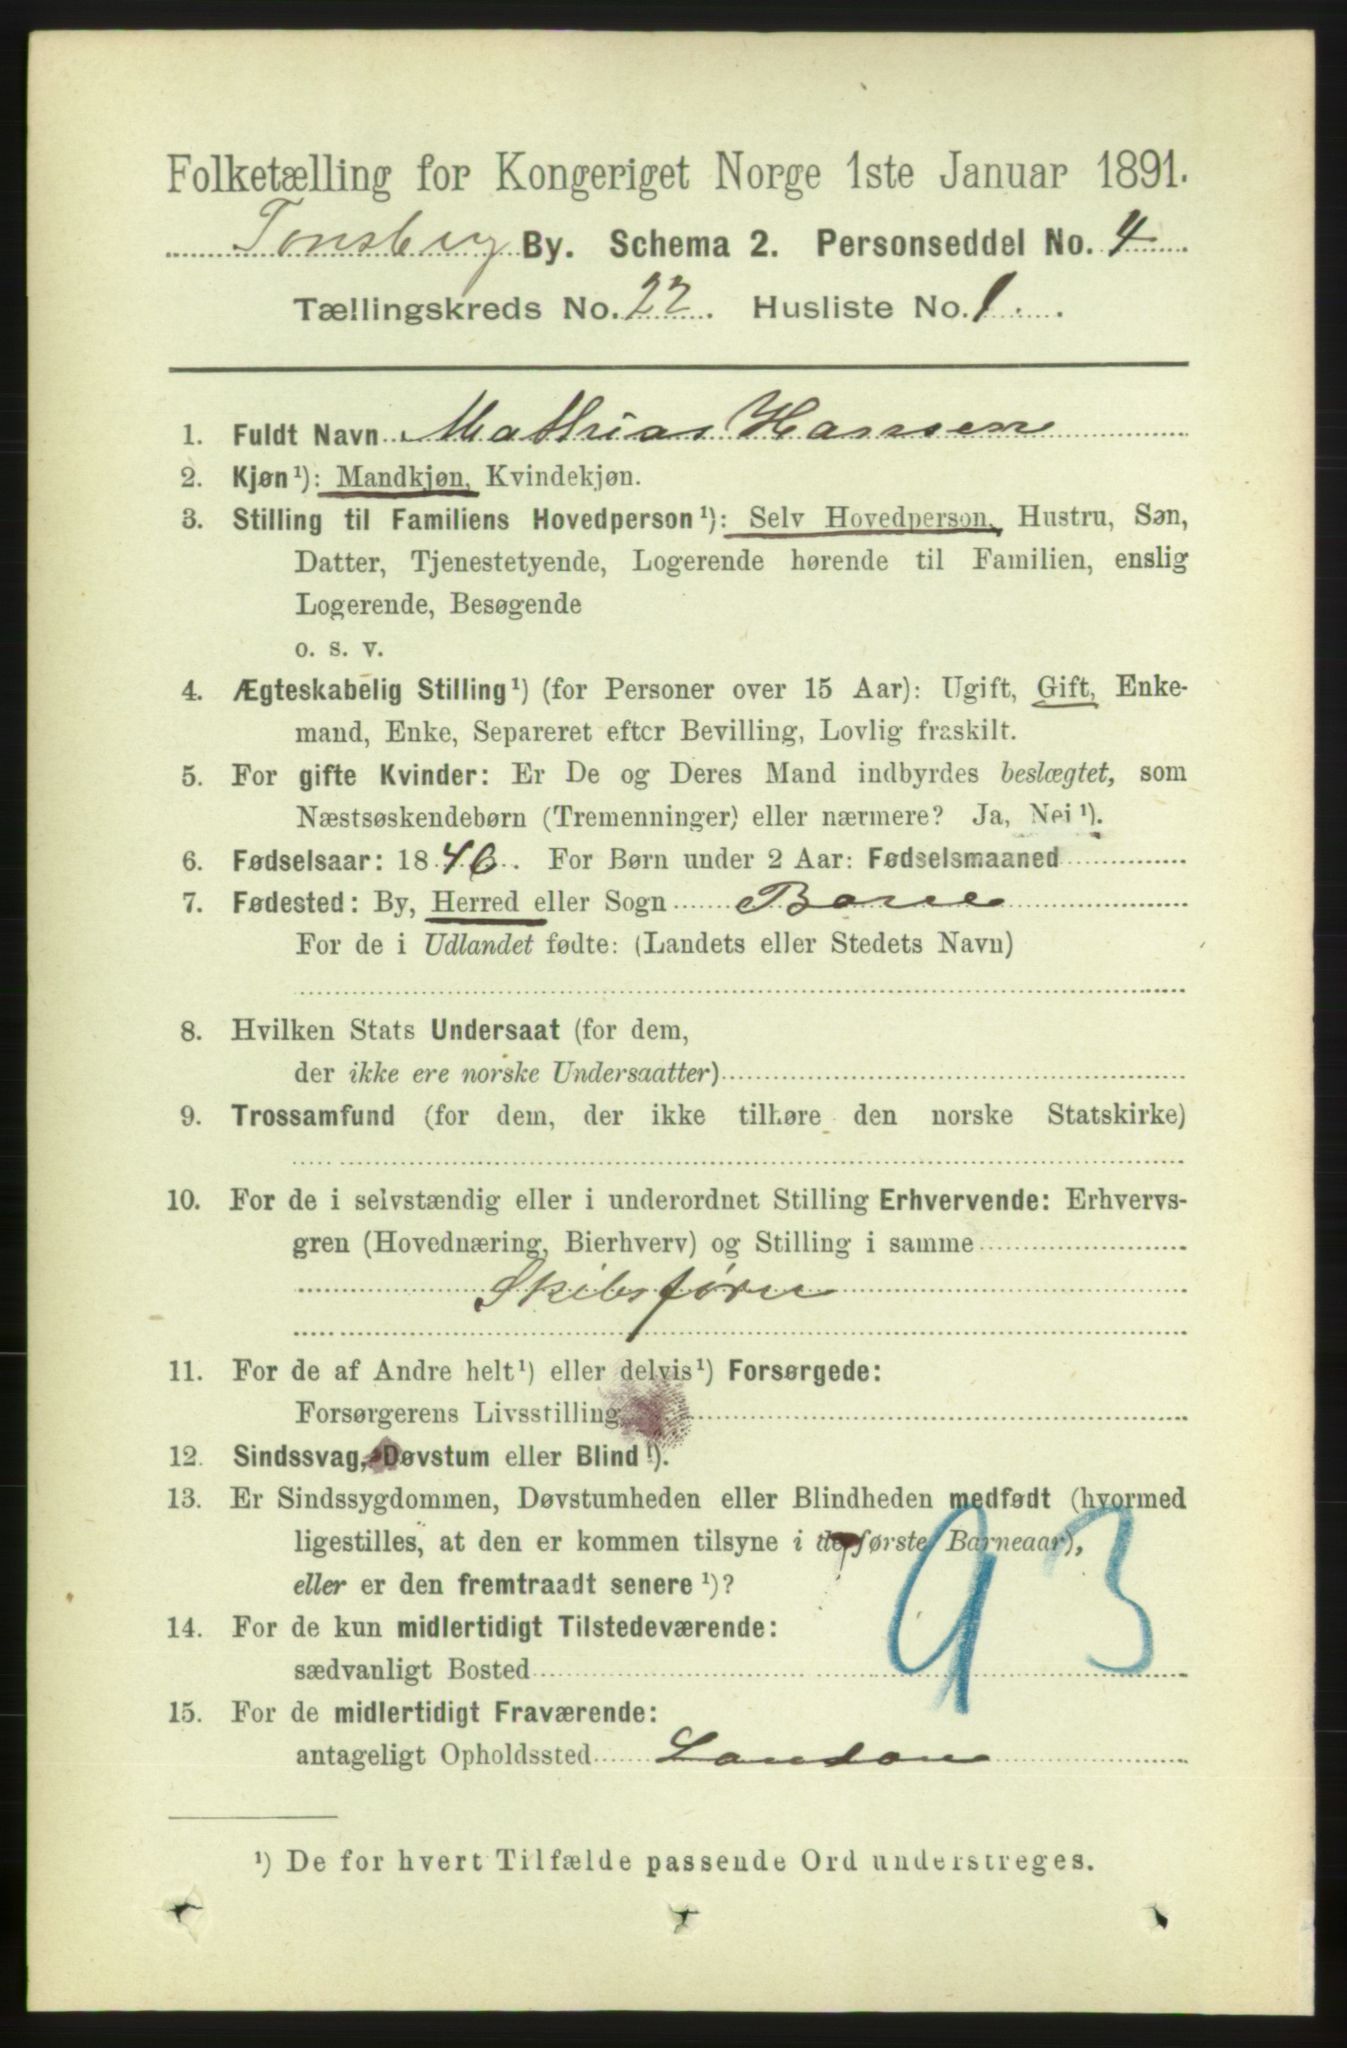 Folketælling for Kongeriget Norge 1ste Januar 1891.
Tønsberg By. Schema 2. Personseddel No. 4
Tællingskreds No. 22. Husliste No. 1.
1. Fuldt Navn Mathias Hansen
2. Kjøn¹): Mandkjøn, Kvindekjøn.
3. Stilling til Familiens Hovedperson¹): Selv Hovedperson, Hustru, Søn,
Datter, Tjenestetyende, Logerende hørende til Familien, enslig
Logerende, Besøgende
o. s. v.
4. Ægteskabelig Stilling¹) (for Personer over 15 Aar): Ugift, Gift, Enke-
mand, Enke, Separeret efter Bevilling, Lovlig fraskilt.
5. For gifte Kvinder: Er De og Deres Mand indbyrdes beslægtet, som
Næstsøskendebørn (Tremenninger) eller nærmere? Ja, Nei¹).
6. Fødselsaar: 1846. For Børn under 2 Aar: Fødselsmaaned
7. Fødested: By, Herred eller Sogn Borre
For de i Udlandet fødte: (Landets eller Stedets Navn)
8. Hvilken Stats Undersaat (for dem,
der ikke ere norske Undersaatter)
9. Trossamfund (for dem, der ikke tilhøre den norske Statskirke)
10. For de i selvstændig eller i underordnet Stilling Erhvervende: Erhvervs-
gren (Hovednæring, Bierhverv) og Stilling i samme
Skibsfører
11. For de af Andre helt¹) eller delvis¹) Forsørgede:
Forsørgerens Livsstilling
12. Sindssvag, Døvstum eller Blind¹).
13. Er Sindssygdommen, Døvstumheden eller Blindheden medfødt (hvormed
ligestilles, at den er kommen tilsyne i de første Barneaar),
eller er den fremtraadt senere¹)?
93
14. For de kun midlertidigt Tilstedeværende:
sædvanligt Bosted
15. For de midlertidigt Fraværende:
antageligt Opholdssted London
¹) De for hvert Tilfælde passende Ord understreges.